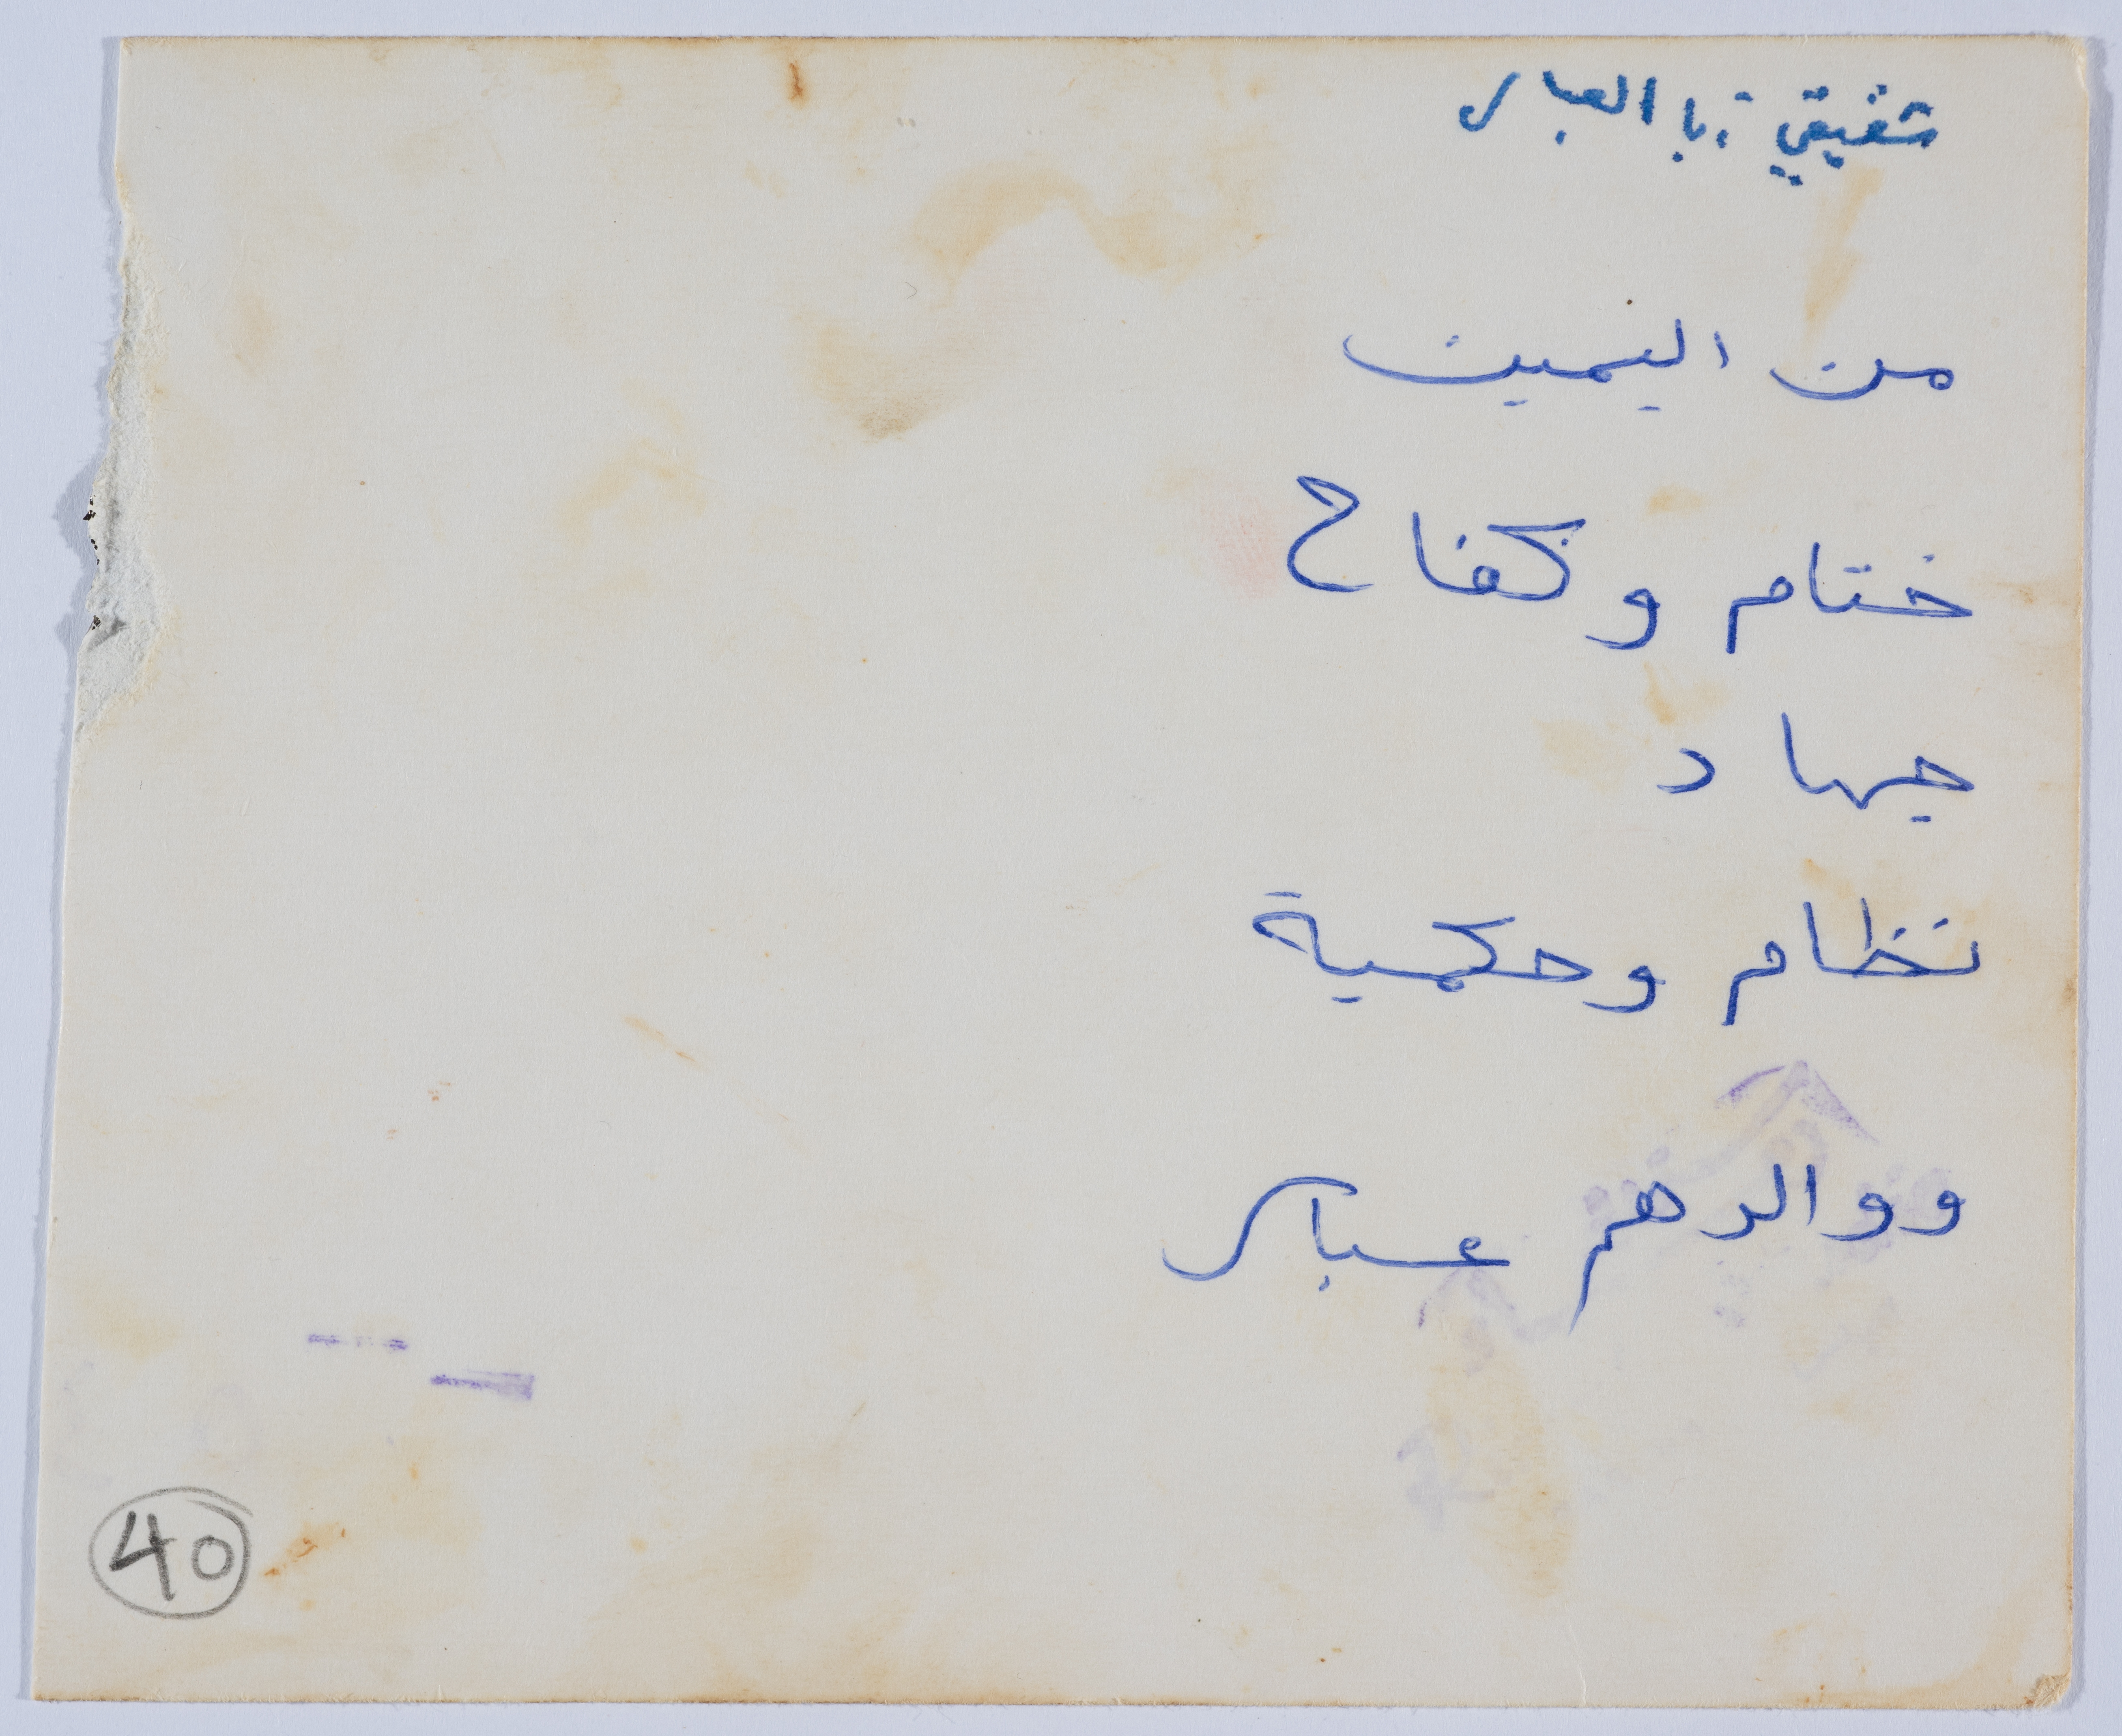 شقيقي ابا العباس
من اليمين
ختام وكفاح
جهاد
نظام وحكمية
ووالدهم عباس
40